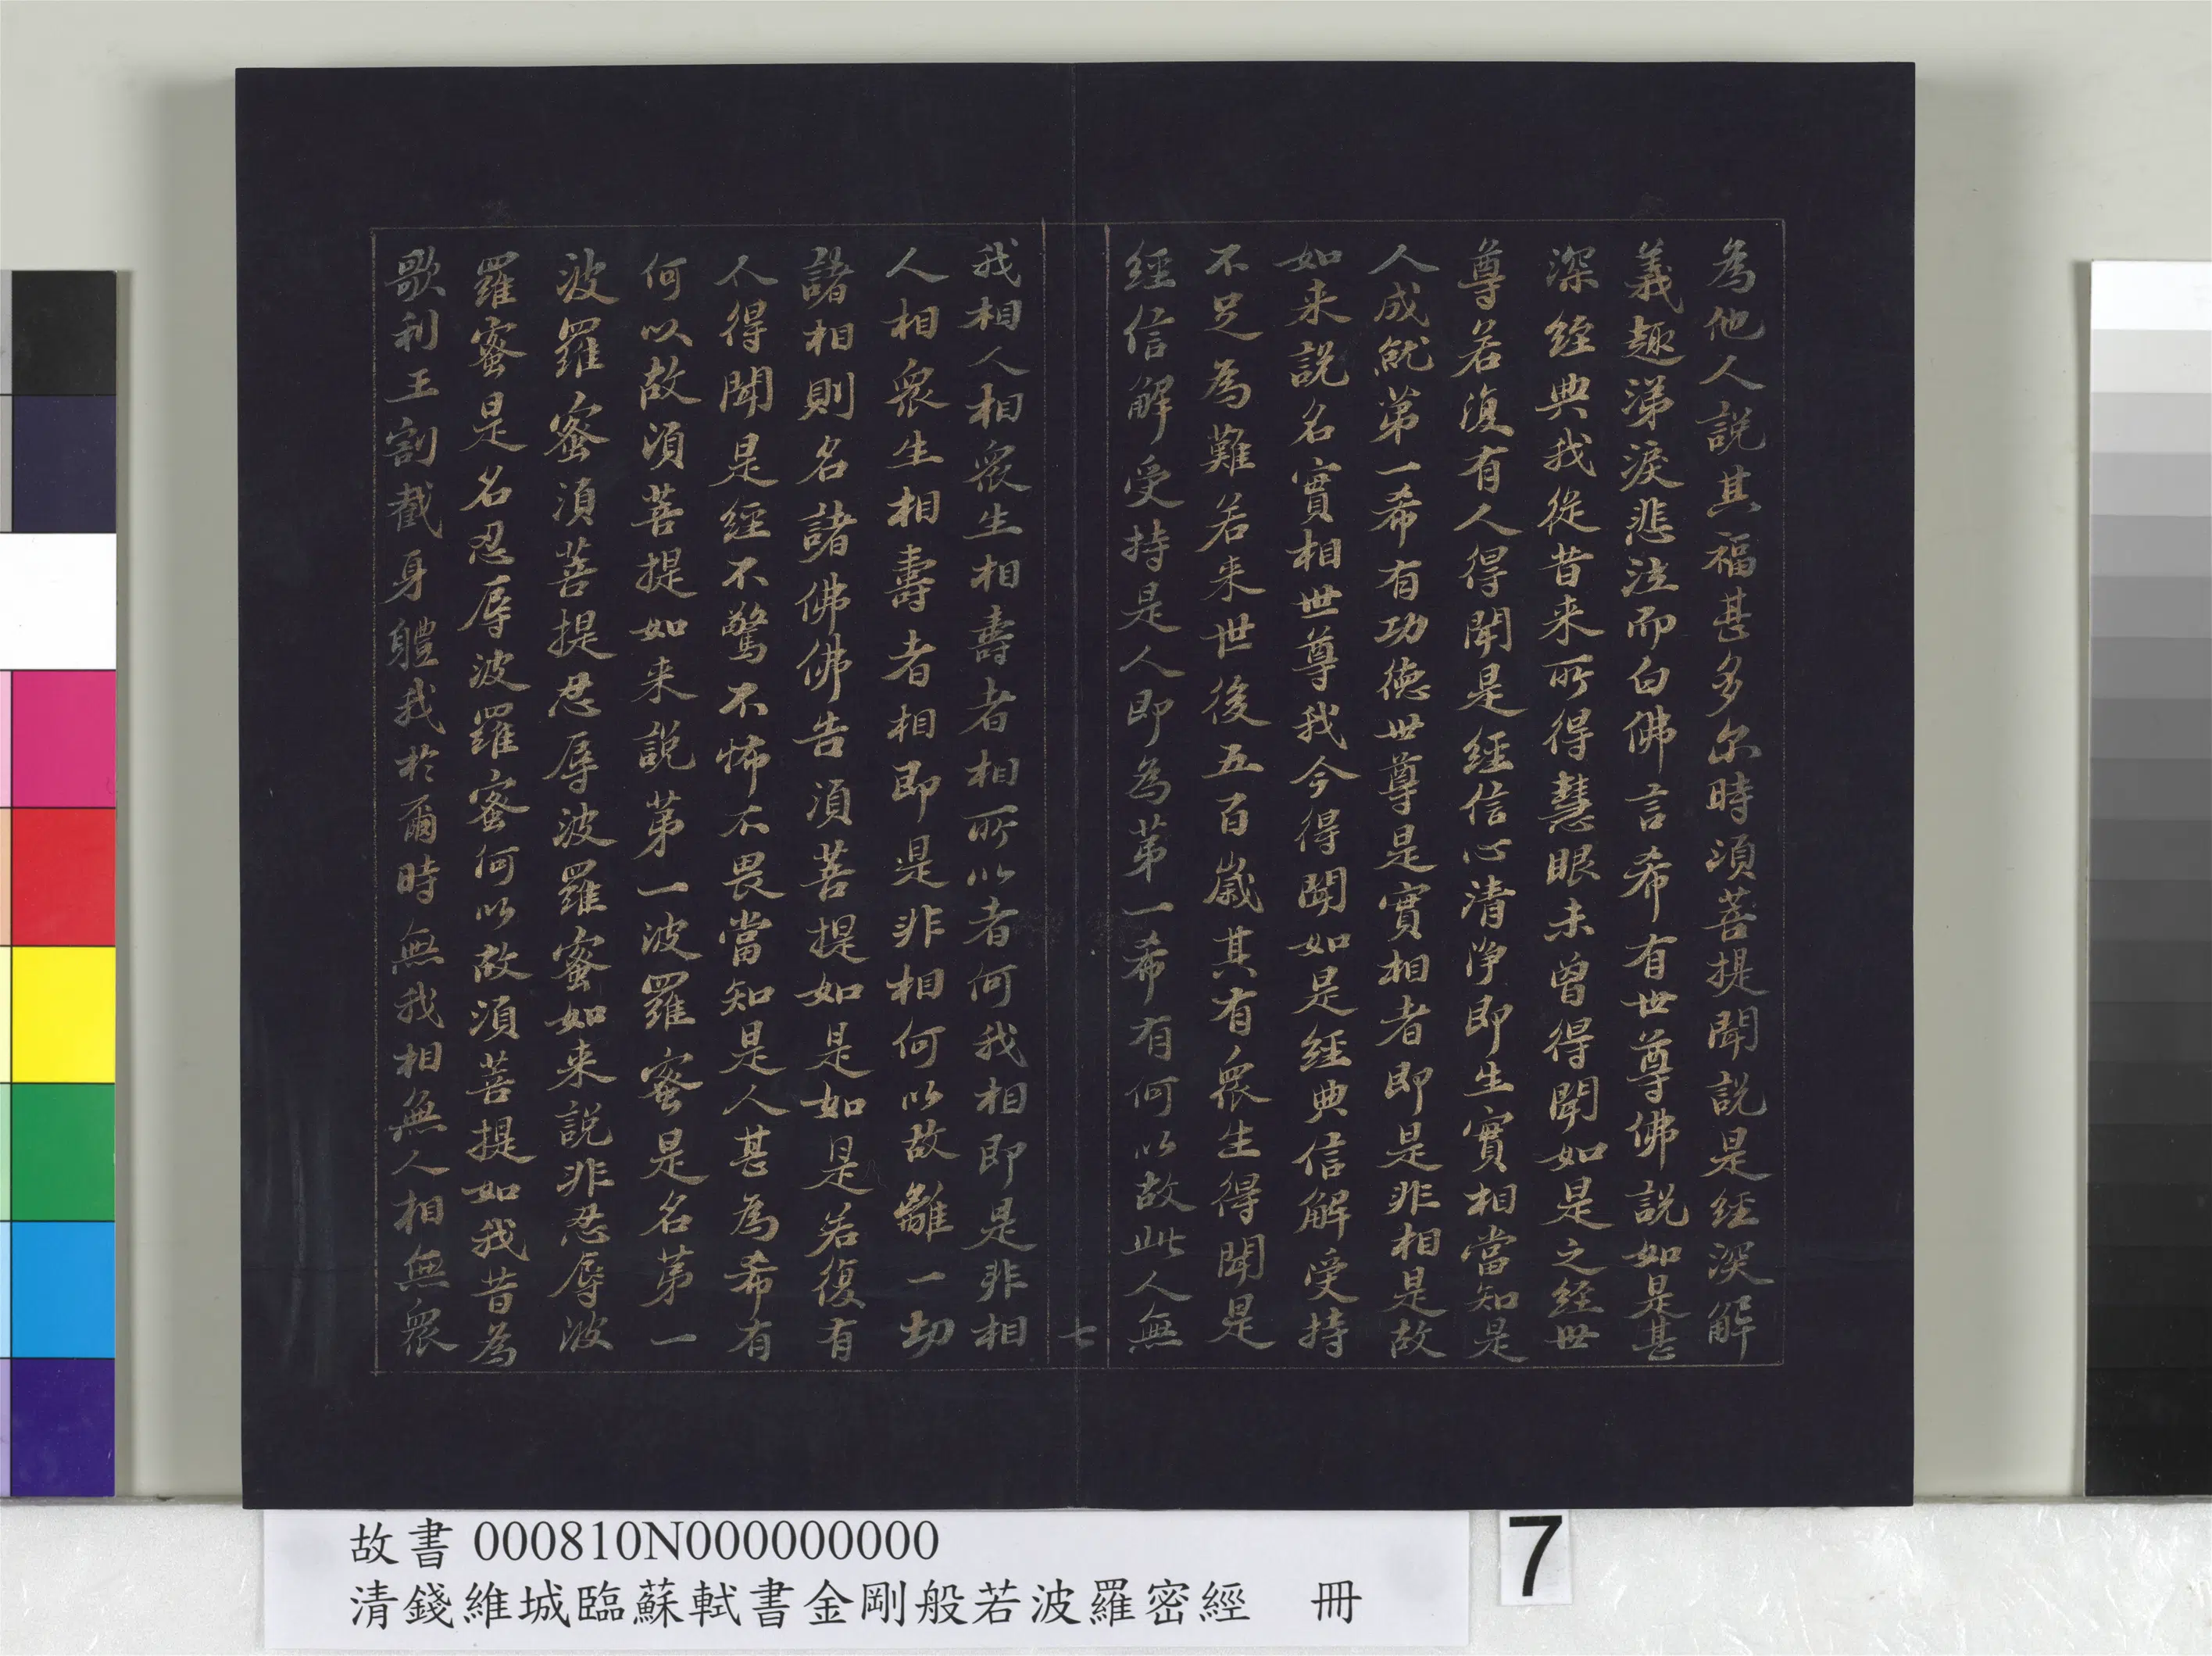 為他人說其福甚多尔時湏菩提聞說是經深解
義趣涕淚悲泣而白佛言希有世尊佛說如是甚
深經典我從昔来所得慧眼未曾得聞如是之經世
尊若復有人得聞是經信心清淨即生實相當知是
人成就第一希有功德世尊是實相者即是非相是故
如来說名實相世尊我今得聞如是經典信解受持
不足為難若来世後五百歲其有衆生得聞是
經信解受持是人即為第一希有何以故此人無
七
我相人相衆生相壽者相所以者何我相即是非相
人相衆生相壽者相即是非相何以故離一切
諸相則名諸佛佛告湏菩提如是如是若復有
人得聞是經不驚不怖不畏當知是人甚為希有
何以故湏菩提如来說第一波羅蜜是名第一
波羅蜜湏菩提忍辱波羅蜜如来說非忍辱波
羅蜜是名忍辱波羅蜜何以故湏菩提如我昔為
歌利王割截身體我於爾時無我相無人相無衆
故書 000810N000000000
清錢維城臨蘇軾書金剛般若波羅密經 冊
7